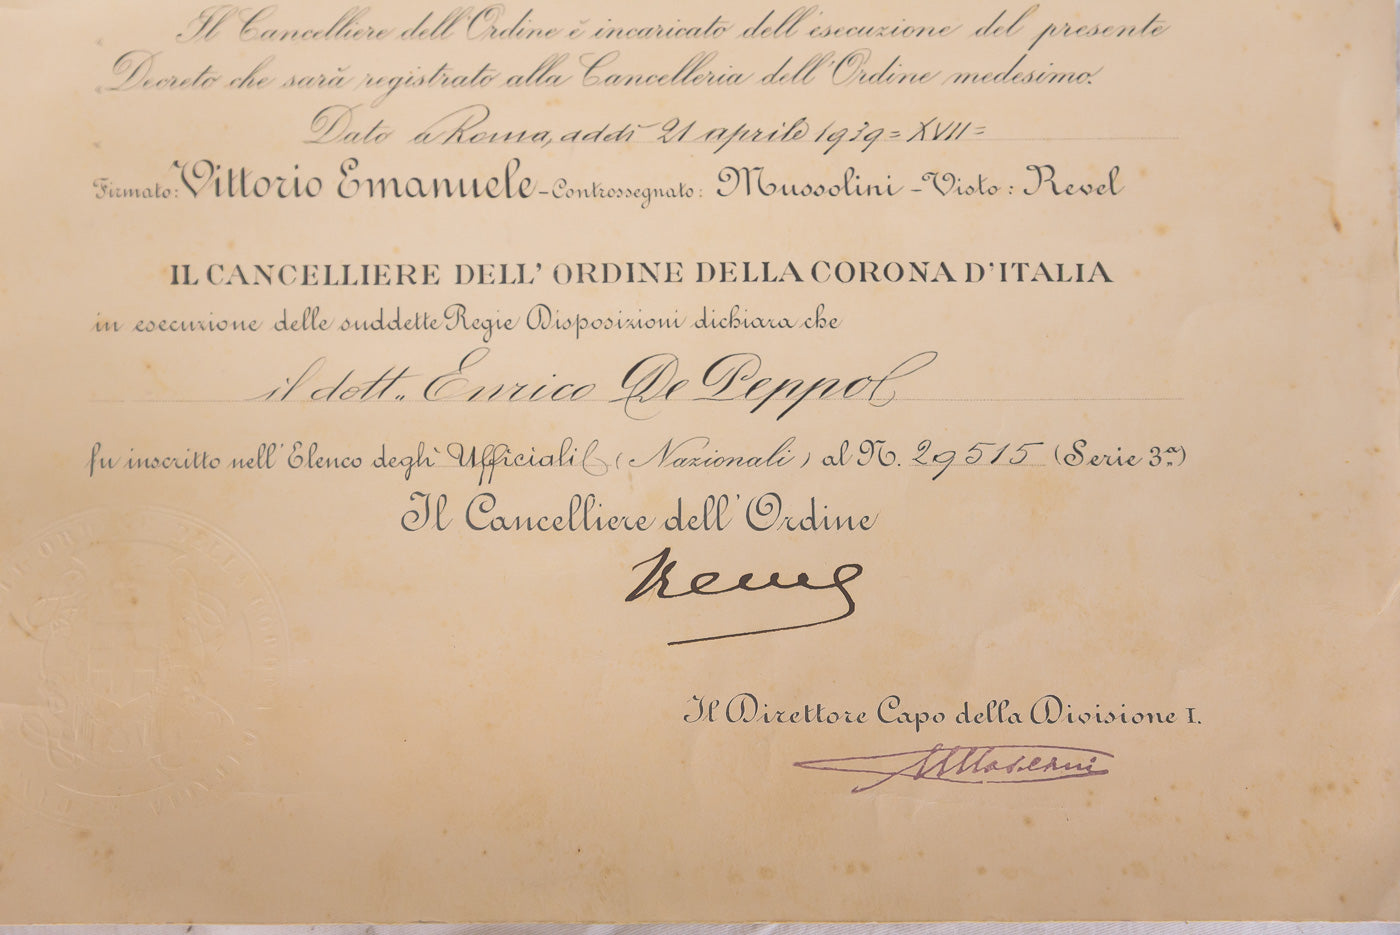 Il Cancelliere dell'Ordine è incaricato dell'esecuzione del presente
Decreto che sarà registrato alla Cancelleria dell'Ordine medesimo.
Dato a Roma, addì 21 aprile 1939=XVII=
Firmato: Vittorio Emanuele - Controssegnato: Mussolini - Visto: Revel
IL CANCELLIERE DELL'ORDINE DELLA CORONA D'ITALIA
in esecuzione delle suddette Regie Disposizioni dichiara che
il dott. Enrico De Peppol
fu inscritto nell'Elenco degli Ufficiali (Nazionali) al N. 29515 (Serie 3ª)
Il Cancelliere dell'Ordine
Il Direttore Capo della Divisione I.